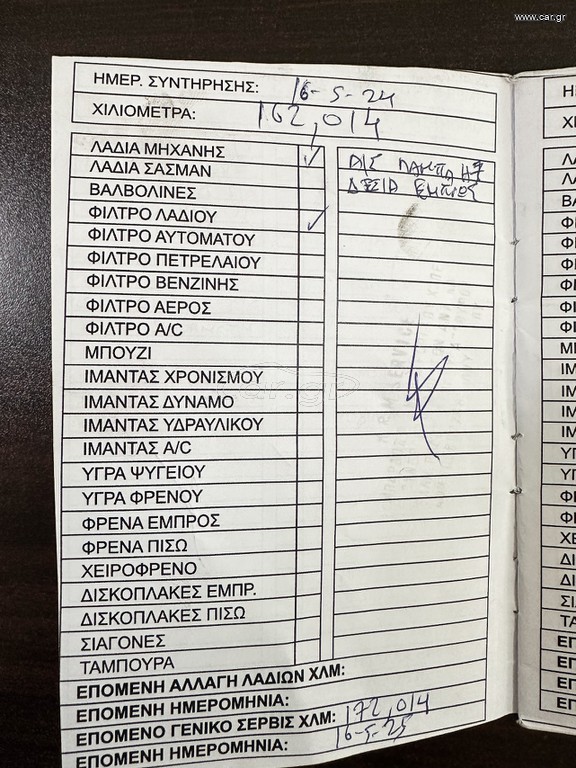 www.car.gr
ΗΜΕΡ. ΣΥΝΤΗΡΗΣΗΣ: 16-5-24
ΧΙΛΙΟΜΕΤΡΑ: 162,014
ΛΑΔΙΑ ΜΗΧΑΝΗΣ ✓ Α/Σ ΛΑΜΠΑ Η7
ΛΑΔΙΑ ΣΑΣΜΑΝ ΔΕΞΙΑ ΕΜΠΡΟΣ
ΒΑΛΒΟΛΙΝΕΣ
ΦΙΛΤΡΟ ΛΑΔΙΟΥ ✓
ΦΙΛΤΡΟ ΑΥΤΟΜΑΤΟΥ
ΦΙΛΤΡΟ ΠΕΤΡΕΛΑΙΟΥ
ΦΙΛΤΡΟ ΒΕΝΖΙΝΗΣ
ΦΙΛΤΡΟ ΑΕΡΟΣ
ΦΙΛΤΡΟ A/C
ΜΠΟΥΖΙ
ΙΜΑΝΤΑΣ ΧΡΟΝΙΣΜΟΥ
ΙΜΑΝΤΑΣ ΔΥΝΑΜΟ
ΙΜΑΝΤΑΣ ΥΔΡΑΥΛΙΚΟΥ
ΙΜΑΝΤΑΣ A/C
ΥΓΡΑ ΨΥΓΕΙΟΥ
ΥΓΡΑ ΦΡΕΝΟΥ
ΦΡΕΝΑ ΕΜΠΡΟΣ
ΦΡΕΝΑ ΠΙΣΩ
ΧΕΙΡΟΦΡΕΝΟ
ΔΙΣΚΟΠΛΑΚΕΣ ΕΜΠΡ.
ΔΙΣΚΟΠΛΑΚΕΣ ΠΙΣΩ
ΣΙΑΓΟΝΕΣ
ΤΑΜΠΟΥΡΑ
ΕΠΟΜΕΝΗ ΑΛΛΑΓΗ ΛΑΔΙΩΝ ΧΛΜ:
ΕΠΟΜΕΝΗ ΗΜΕΡΟΜΗΝΙΑ:
ΕΠΟΜΕΝΟ ΓΕΝΙΚΟ ΣΕΡΒΙΣ ΧΛΜ: 172,014
ΕΠΟΜΕΝΗ ΗΜΕΡΟΜΗΝΙΑ: 16-5-25